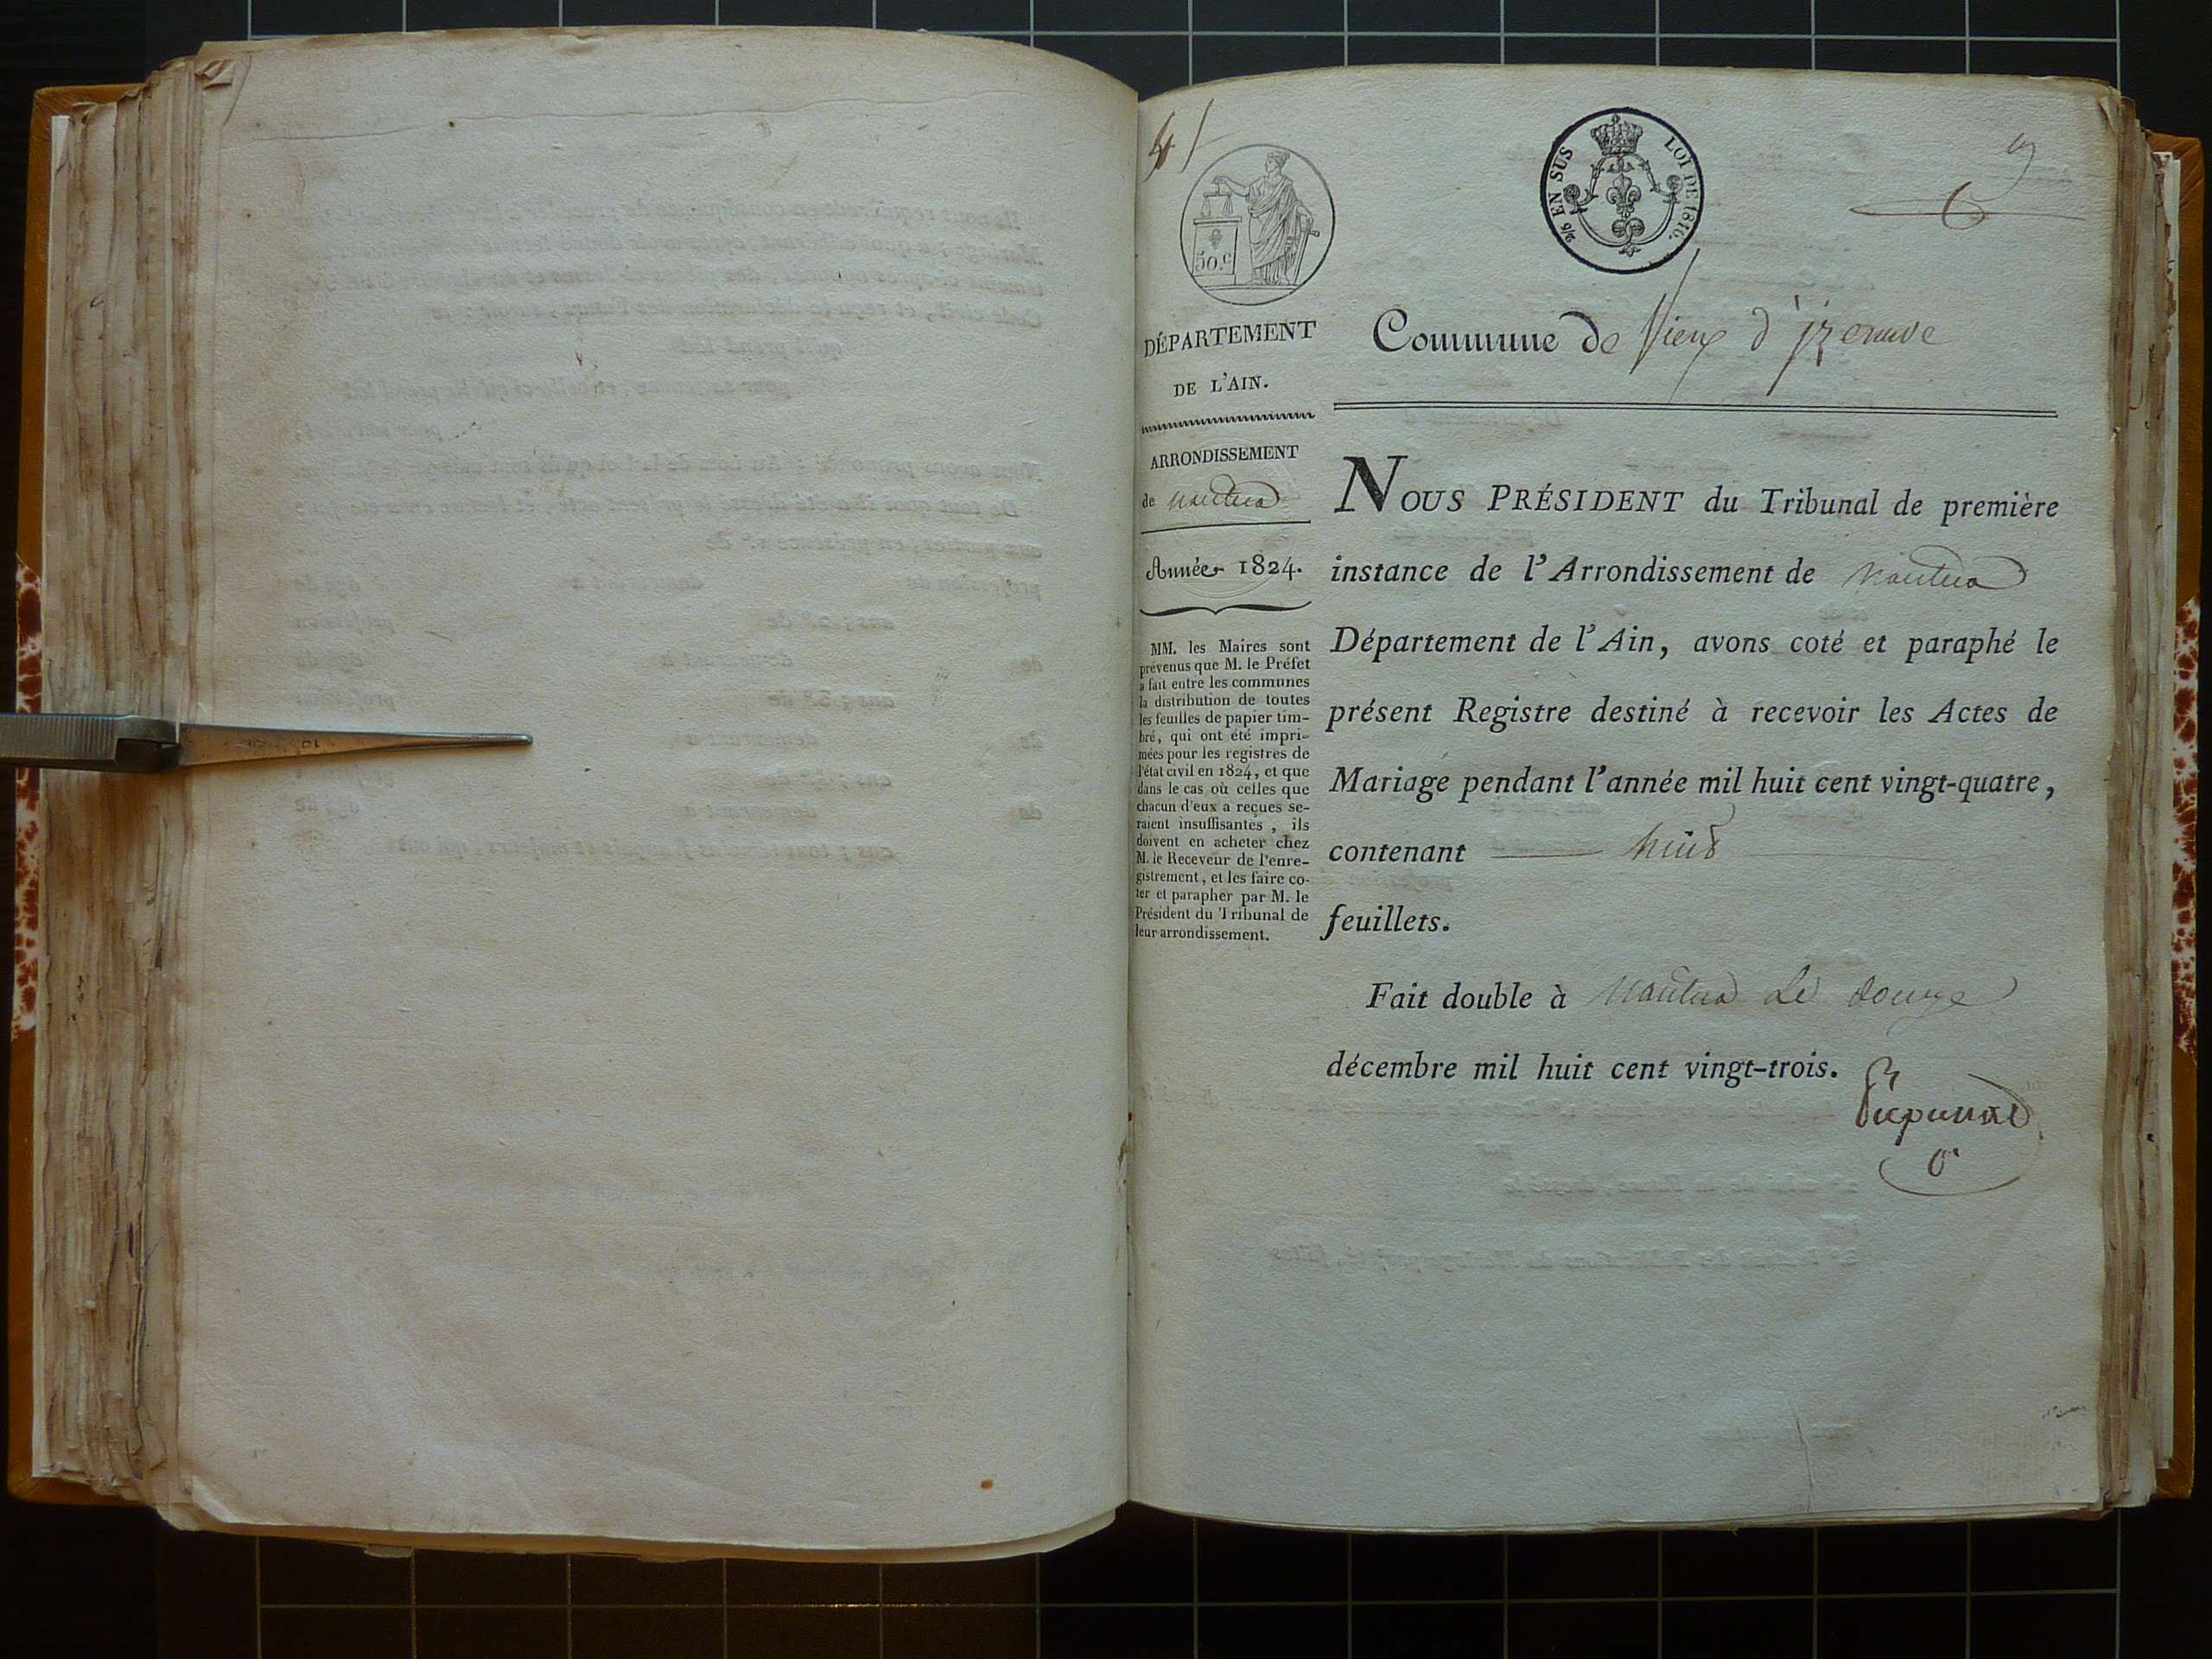 4/
50.c
2/5 EN SUS LOI DE 1816.
DÉPARTEMENT
DE L'AIN.
ARRONDISSEMENT
de Nantua
Année 1824.
MM. les Maires sont
prévenus que M. le Préfet
a fait entre les communes
la distribution de toutes
les feuilles de papier tim-
bré, qui ont été impri-
mées pour les registres de
l'état civil en 1824, et que
dans le cas où celles que
chacun d'eux a reçues se-
raient insuffisantes, ils
doivent en acheter chez
M. le Receveur de l'enre-
gistrement, et les faire co-
ter et parapher par M. le
Président du Tribunal de
leur arrondissement.
Commune de Vieux d'izenave
NOUS PRÉSIDENT du Tribunal de première
instance de l'Arrondissement de Nantua
Département de l'Ain, avons coté et paraphé le
présent Registre destiné à recevoir les Actes de
Mariage pendant l'année mil huit cent vingt-quatre,
contenant huit
feuillets.
Fait double à Nantua Le douze
décembre mil huit cent vingt-trois.